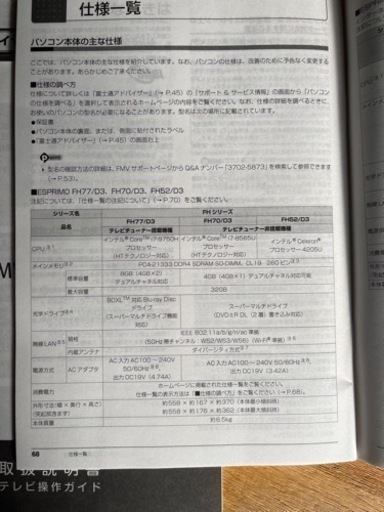 仕様一覧
パソコン本体の主な仕様
ここでは、パソコン本体の主な仕様を紹介しています。なお、パソコンの仕様は、改善のために予告なく変更する
ことがあります。あらかじめご了承ください。
■仕様の調べ方
仕様について詳しくは「富士通アドバイザー」(→P.45)の「サポート&サービス情報」の画面から「パソコン
の仕様を調べる」を選択して表示されるホームページの内容をご覧ください。なお、仕様の詳細を調べるときに、
お使いのパソコンの型名が必要になります。型名は次の場所に記載されています。
●保証書
●パソコン本体の裏面、または、側面に貼付されたラベル
●「富士通アドバイザー」(→P.45)の画面右上
・型名の確認方法の詳細は、FMVサポートページからQ&Aナンバー「3702-5873」を検索して参照できます
(→P.53)。
■ESPRIMO FH77/D3、FH70/D3、FH52/D3
注記については、「仕様一覧の注記について」(→P.70)をご覧ください。
シリーズ名 FHシリーズ
品名 FH77/D3 FH70/D3 FH52/D3
テレビチューナー搭載機種 テレビチューナー非搭載機種
CPU インテル® Core™ i7-9750H プロセッサー (HTテクノロジー対応) インテル® Core™ i7-8565U プロセッサー (HTテクノロジー対応) インテル® Celeron® プロセッサー 4205U
メインメモリ PC4-21333 DDR4 SDRAM SO-DIMM, CL19 260ピン
標準容量 8GB (4GB×2) デュアルチャネル対応 4GB (4GB×1) デュアルチャネル対応可能
最大容量 32GB
光学ドライブ BDXL™対応 Blu-ray Disc ドライブ (スーパーマルチドライブ機能対応) スーパーマルチドライブ (DVD±R DL(2層)書き込み対応)
無線LAN 規格 IEEE 802.11a/b/g/n/ac準拠
(5GHz帯チャンネル:W52/W53/W56) (Wi-Fi®準拠)
内蔵アンテナ ダイバーシティ方式
電源方式 ACアダプタ 入力 AC100~240V 50/60Hz 出力 DC19V (4.74A) 入力 AC100~240V 50/60Hz 出力 DC19V (3.42A)
消費電力 ホームページに掲載された仕様一覧をご覧ください。
仕様一覧の表示方法は「■仕様の調べ方」(→P.68)をご覧ください。
外形寸法(幅×奥行×高さ) (突起部含まず) 約558×167×370 (本体最小傾斜時)
約558×176×362 (本体最大傾斜時)
本体質量 約6.5kg
68 仕様一覧
取扱説明書
テレビ操作ガイド